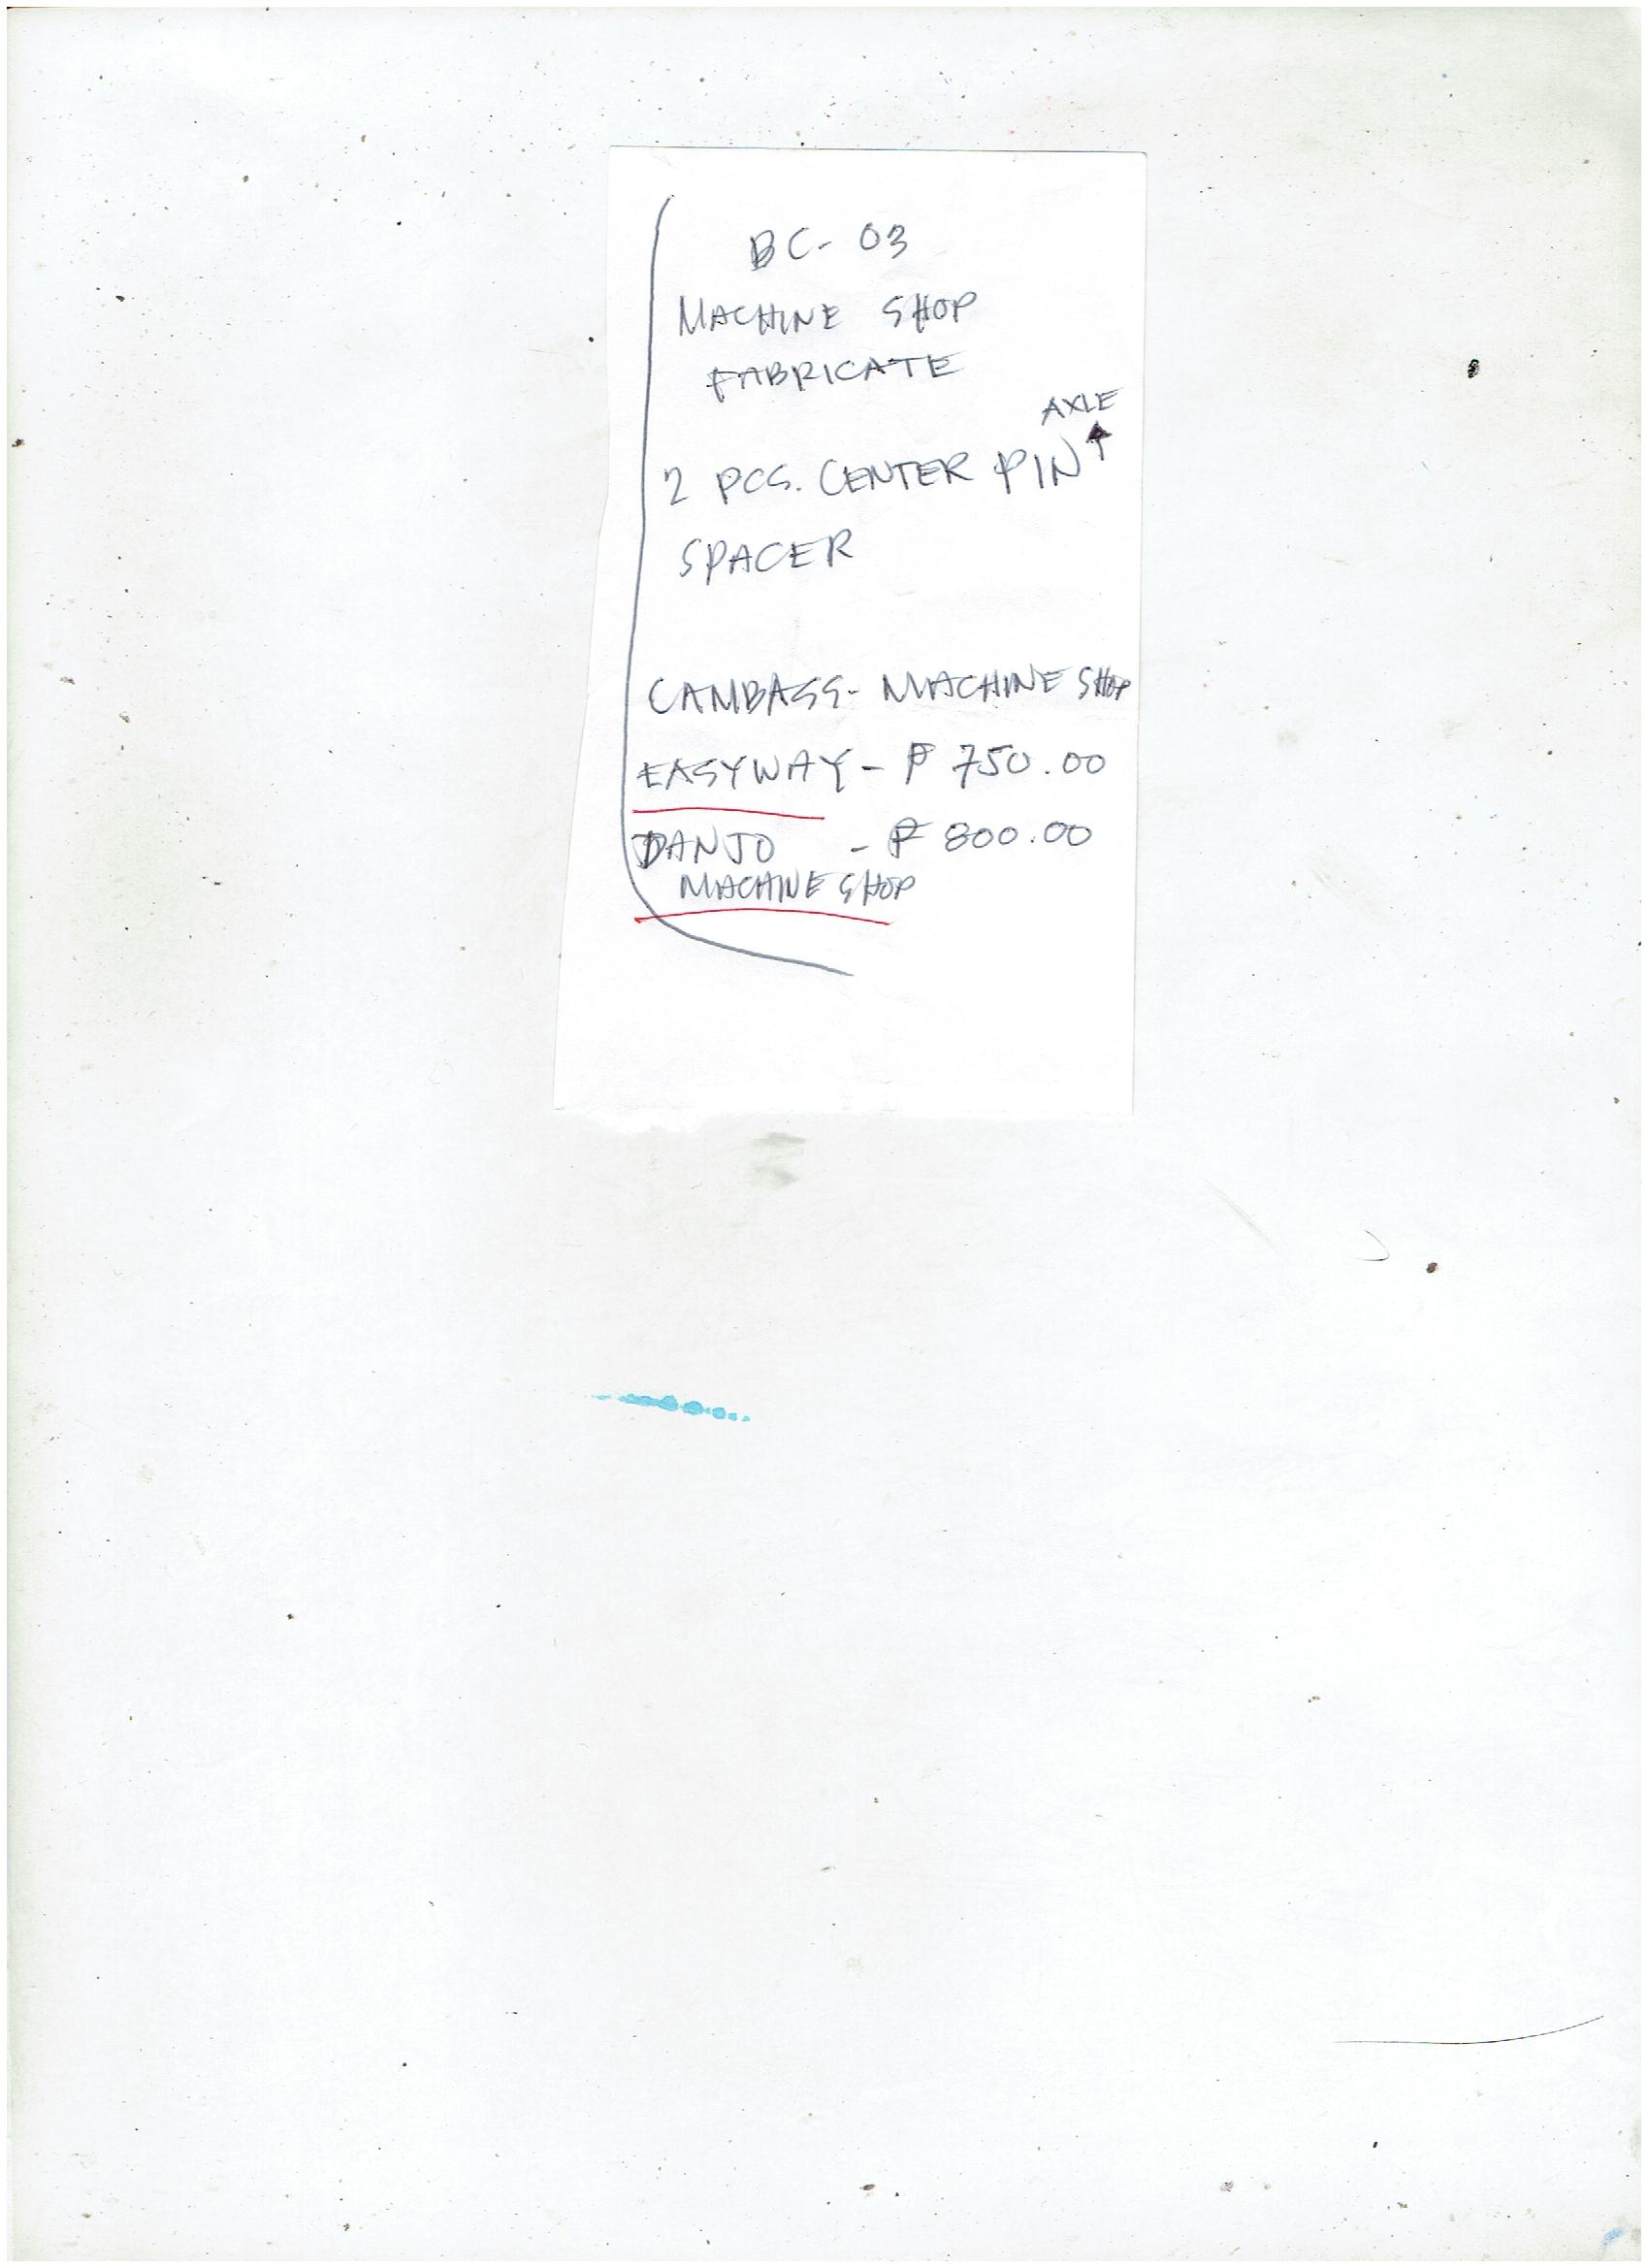 BC- 03
MACHINE SHOP
FABRICATE
AXLE
2 PCS. CENTER PIN
SPACER
CAMBASS- MACHINE SHOP
EASYWAY - ₱ 750.00
DANJO - ₱ 800.00
MACHINE SHOP